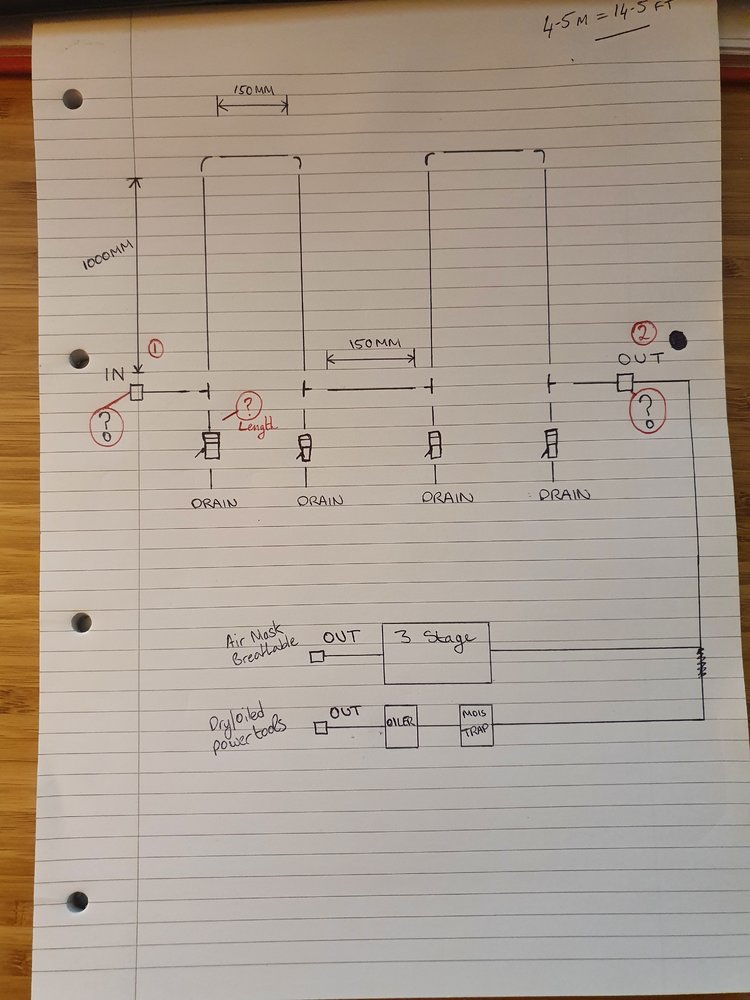 4-5M = 14-5 FT
150MM
1000MM
①
150MM
②
IN
OUT
?
?
Length
?
DRAIN
DRAIN
DRAIN
DRAIN
Air Mask
Breathable
OUT
3 Stage
Dry/oiled
powertools
OUT
OILER
MOIS
TRAP